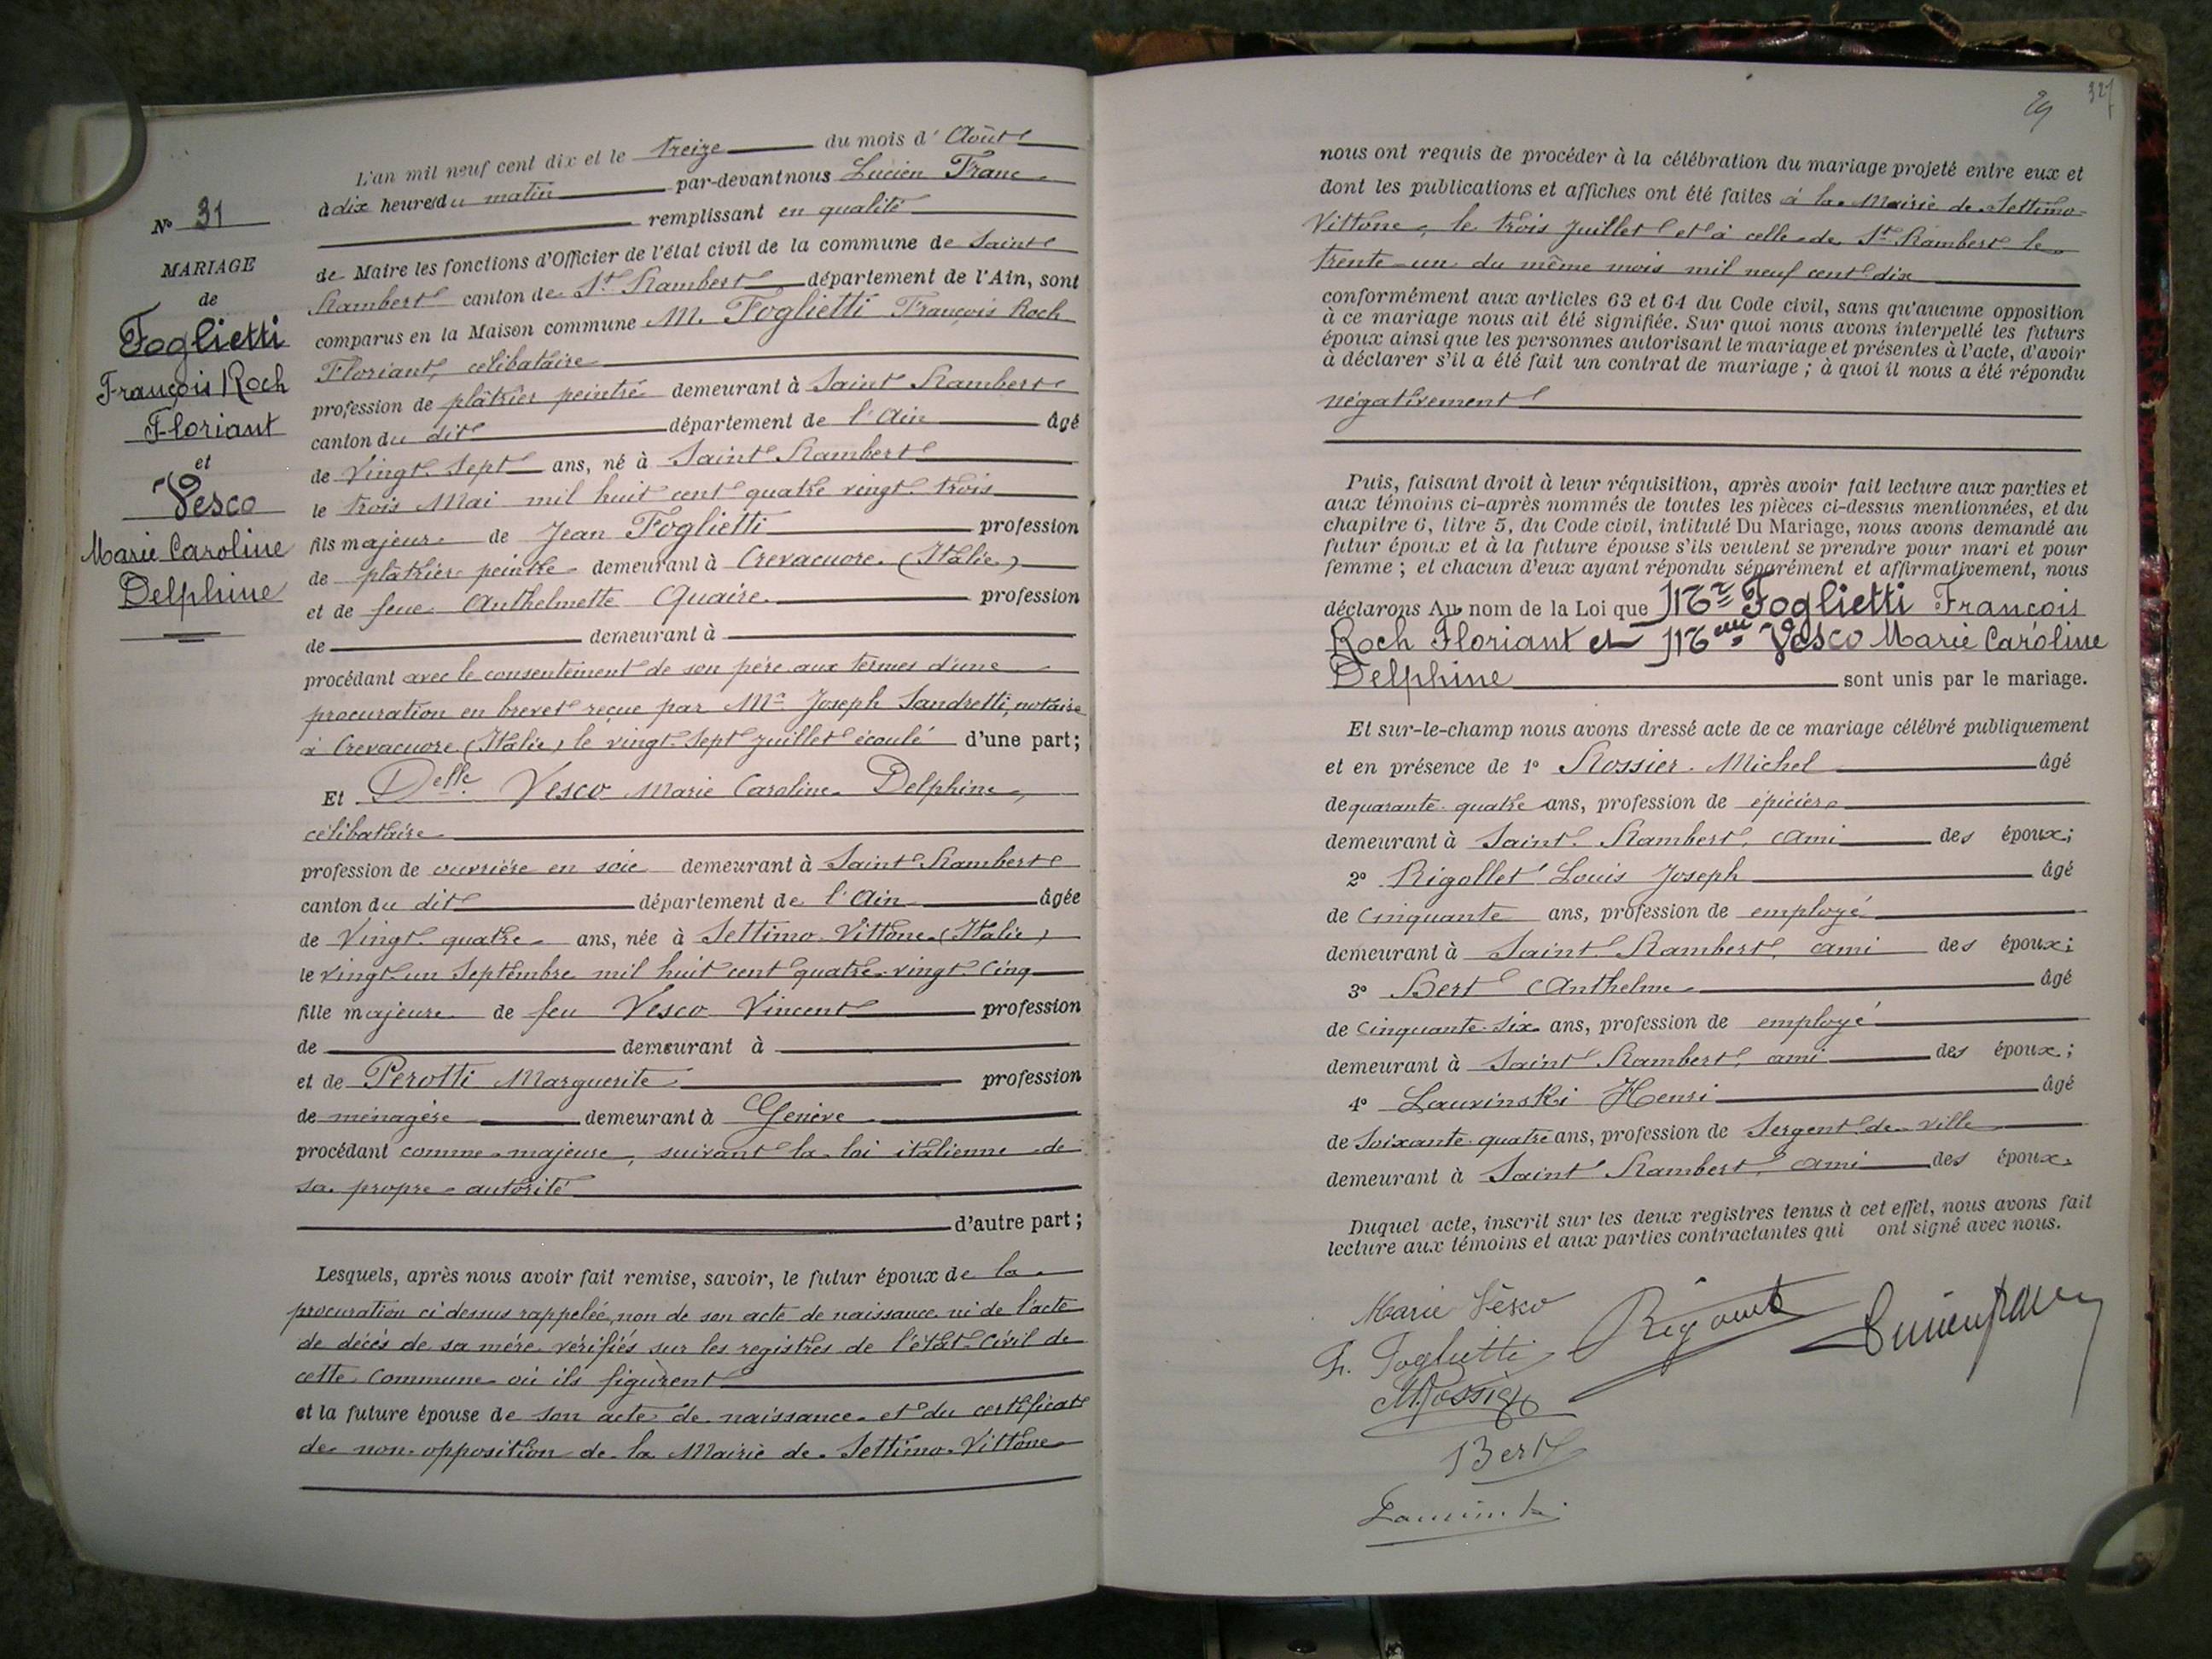 N° 31
MARIAGE
de
Foglietti
François Roch
Floriant
et
Vesco
Marie Caroline
Delphine
L'an mil neuf cent dix et le treize du mois d'Août
à dix heures du matin par-devant nous Lucien Franc
remplissant en qualité
de Maire les fonctions d'Officier de l'état civil de la commune de Saint
Rambert canton de St Rambert département de l'Ain, sont
comparus en la Maison commune M. Foglietti François Roch
Floriant, célibataire
profession de plâtrier peintre demeurant à Saint Rambert
canton du dit département de l'Ain âgé
de vingt-sept ans, né à Saint Rambert
le trois Mai mil huit cent quatre vingt trois
fils majeur de Jean Foglietti profession
de plâtrier peintre demeurant à Crevacuore (Italie)
et de feue Anthelmette Quaire profession
de demeurant à
procédant avec le consentement de son père aux termes d'une
procuration en brevet reçue par Me Joseph Sandretti, notaire
à Crevacuore (Italie) le vingt-sept juillet écoulé d'une part;
Et Delle Vesco Marie Caroline Delphine,
célibataire
profession de ouvrière en soie demeurant à Saint Rambert
canton du dit département de l'Ain âgée
de vingt-quatre ans, née à Settimo-Vittone (Italie)
le vingt-un Septembre mil huit cent quatre-vingt-cinq
fille majeure de feu Vesco Vincent profession
de demeurant à
et de Perotti Marguerite profession
de ménagère demeurant à Genève
procédant comme majeure, suivant la loi italienne de
sa propre autorité
d'autre part;
Lesquels, après nous avoir fait remise, savoir, le futur époux de la
procuration ci-dessus rappelée, non de son acte de naissance ni de l'acte
de décès de sa mère vérifiés sur les registres de l'état-civil de
cette commune où ils figurent
et la future épouse de son acte de naissance et du certificat
de non-opposition de la Mairie de Settimo-Vittone
29
327
nous ont requis de procéder à la célébration du mariage projeté entre eux et
dont les publications et affiches ont été faites à la Mairie de Settimo-
Vittone, le trois juillet et à celle de St Rambert le
trente-un du même mois mil neuf cent dix
conformément aux articles 63 et 64 du Code civil, sans qu'aucune opposition
à ce mariage nous ait été signifiée. Sur quoi nous avons interpellé les futurs
époux ainsi que les personnes autorisant le mariage et présentes à l'acte, d'avoir
à déclarer s'il a été fait un contrat de mariage; à quoi il nous a été répondu
négativement
Puis, faisant droit à leur réquisition, après avoir fait lecture aux parties et
aux témoins ci-après nommés de toutes les pièces ci-dessus mentionnées, et du
chapitre 6, titre 5, du Code civil, intitulé Du Mariage, nous avons demandé au
futur époux et à la future épouse s'ils veulent se prendre pour mari et pour
femme; et chacun d'eux ayant répondu séparément et affirmativement, nous
déclarons Au nom de la Loi que Mr Foglietti François
Roch Floriant et Melle Vesco Marie Caroline
Delphine sont unis par le mariage.
Et sur-le-champ nous avons dressé acte de ce mariage célébré publiquement
et en présence de 1° Rossier Michel âgé
de quarante-quatre ans, profession de épicier
demeurant à Saint Rambert, ami des époux;
2° Rigollet Louis Joseph âgé
de cinquante ans, profession de employé
demeurant à Saint Rambert, ami des époux;
3° Bert Anthelme âgé
de cinquante-six ans, profession de employé
demeurant à Saint Rambert, ami des époux;
4° Lauvinski Henri âgé
de soixante-quatre ans, profession de Sergent de ville
demeurant à Saint Rambert, ami des époux.
Duquel acte, inscrit sur les deux registres tenus à cet effet, nous avons fait
lecture aux témoins et aux parties contractantes qui ont signé avec nous.
Marie Vesco
F. Foglietti
M Rossier
Bert